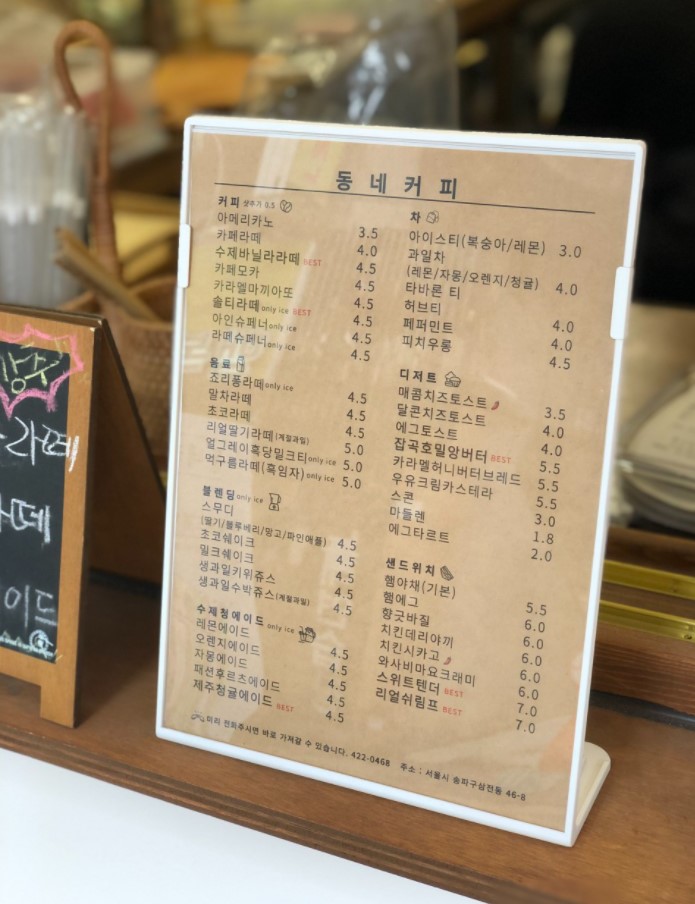 동네커피
커피 샷추가 0.5
아메리카노 3.5
카페라떼 4.0
수제바닐라라떼 BEST 4.5
카페모카 4.5
카라멜마끼아또 4.5
솔티라떼 only ice BEST 4.5
아인슈페너 only ice 4.5
라떼슈페너 only ice 4.5
음료
죠리퐁라떼 only ice 4.5
말차라떼 4.5
초코라떼 4.5
리얼딸기라떼 (계절과일) 5.0
얼그레이흑당밀크티 only ice 5.0
먹구름라떼(흑임자) only ice 5.0
블렌딩 only ice
스무디
(딸기/블루베리/망고/파인애플) 4.5
초코쉐이크 4.5
밀크쉐이크 4.5
생과일키위쥬스 4.5
생과일수박쥬스 (계절과일) 4.5
수제청에이드 only ice
레몬에이드 4.5
오렌지에이드 4.5
자몽에이드 4.5
패션후르츠에이드 4.5
제주청귤에이드 BEST 4.5
차
아이스티(복숭아/레몬) 3.0
과일차
(레몬/자몽/오렌지/청귤) 4.0
타바론 티
허브티 4.0
페퍼민트 4.0
피치우롱 4.5
디저트
매콤치즈토스트 3.5
달콘치즈토스트 4.0
에그토스트 4.0
잡곡호밀앙버터 BEST 5.5
카라멜허니버터브레드 5.5
우유크림카스테라 5.5
스콘 3.0
마들렌 1.8
에그타르트 2.0
샌드위치
햄야채(기본) 5.5
햄에그 6.0
향긋바질 6.0
치킨데리야끼 6.0
치킨시카고 6.0
와사비마요크래미 6.0
스위트텐더 BEST 7.0
리얼쉬림프 BEST 7.0
미리 전화주시면 바로 가져갈 수 있습니다. 422-0468 주소 : 서울시 송파구삼전동 46-8
라떼
라떼
에이드